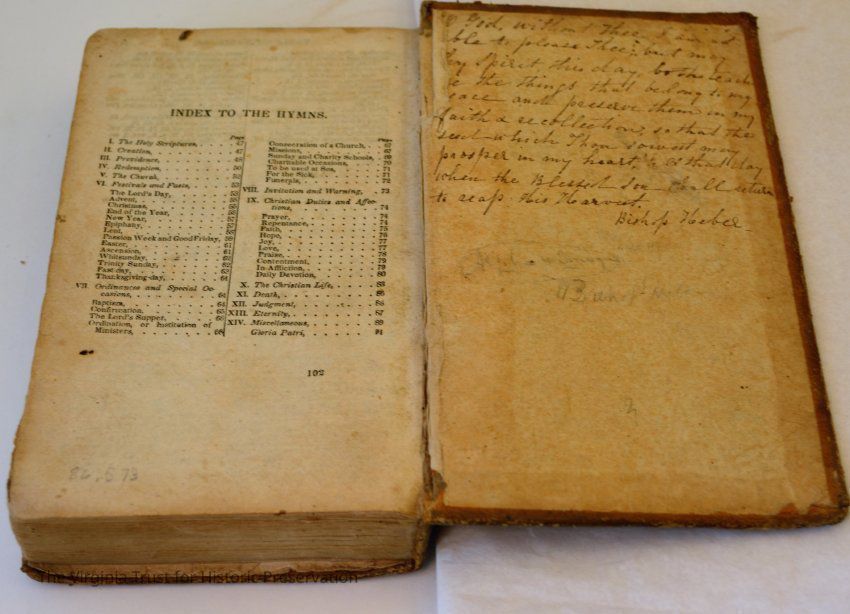 INDEX TO THE HYMNS.
Page
I. The Holy Scriptures, 47
II. Creation, 47
III. Providence, 48
IV. Redemption, 50
V. The Church, 52
VI. Festivals and Fasts, 53
The Lord's Day, 53
Advent, 55
Christmas, 55
End of the Year, 56
New Year, 57
Epiphany, 57
Lent, 58
Passion Week and Good Friday, 59
Easter, 61
Ascension, 61
Whitsunday, 62
Trinity Sunday, 62
Fast-day, 63
Thanksgiving-day, 64
VII. Ordinances and Special Oc-
casions, 64
Baptism, 64
Confirmation, 65
The Lord's Supper, 66
Ordination, or Institution of
Ministers, 66
Page
Consecration of a Church, 67
Missions, 67
Sunday and Charity Schools, 69
Charitable Occasions, 70
To be used at Sea, 71
For the Sick, 71
Funerals, 72
VIII. Invitation and Warning, 73
IX. Christian Duties and Affec-
tions, 74
Prayer, 74
Repentance, 74
Faith, 75
Hope, 76
Joy, 77
Love, 77
Praise, 78
Contentment, 79
In Affliction, 79
Daily Devotion, 80
X. The Christian Life, 83
XI. Death, 85
XII. Judgment, 86
XIII. Eternity, 87
XIV. Miscellaneous, 89
Gloria Patri, 91
102
86.573
God, without Thee, I am not
ble to please Thee; but may
Spirit, this day, both teach
the things that belong to my
eace and preserve them in my
faith & recollection, so that the
seed which Thou sowest may
prosper in my heart, & at that day
when the Blessed Son shall return
to reap His Harvest.
Bishop Heber
The Virginia Trust for Historic Preservation